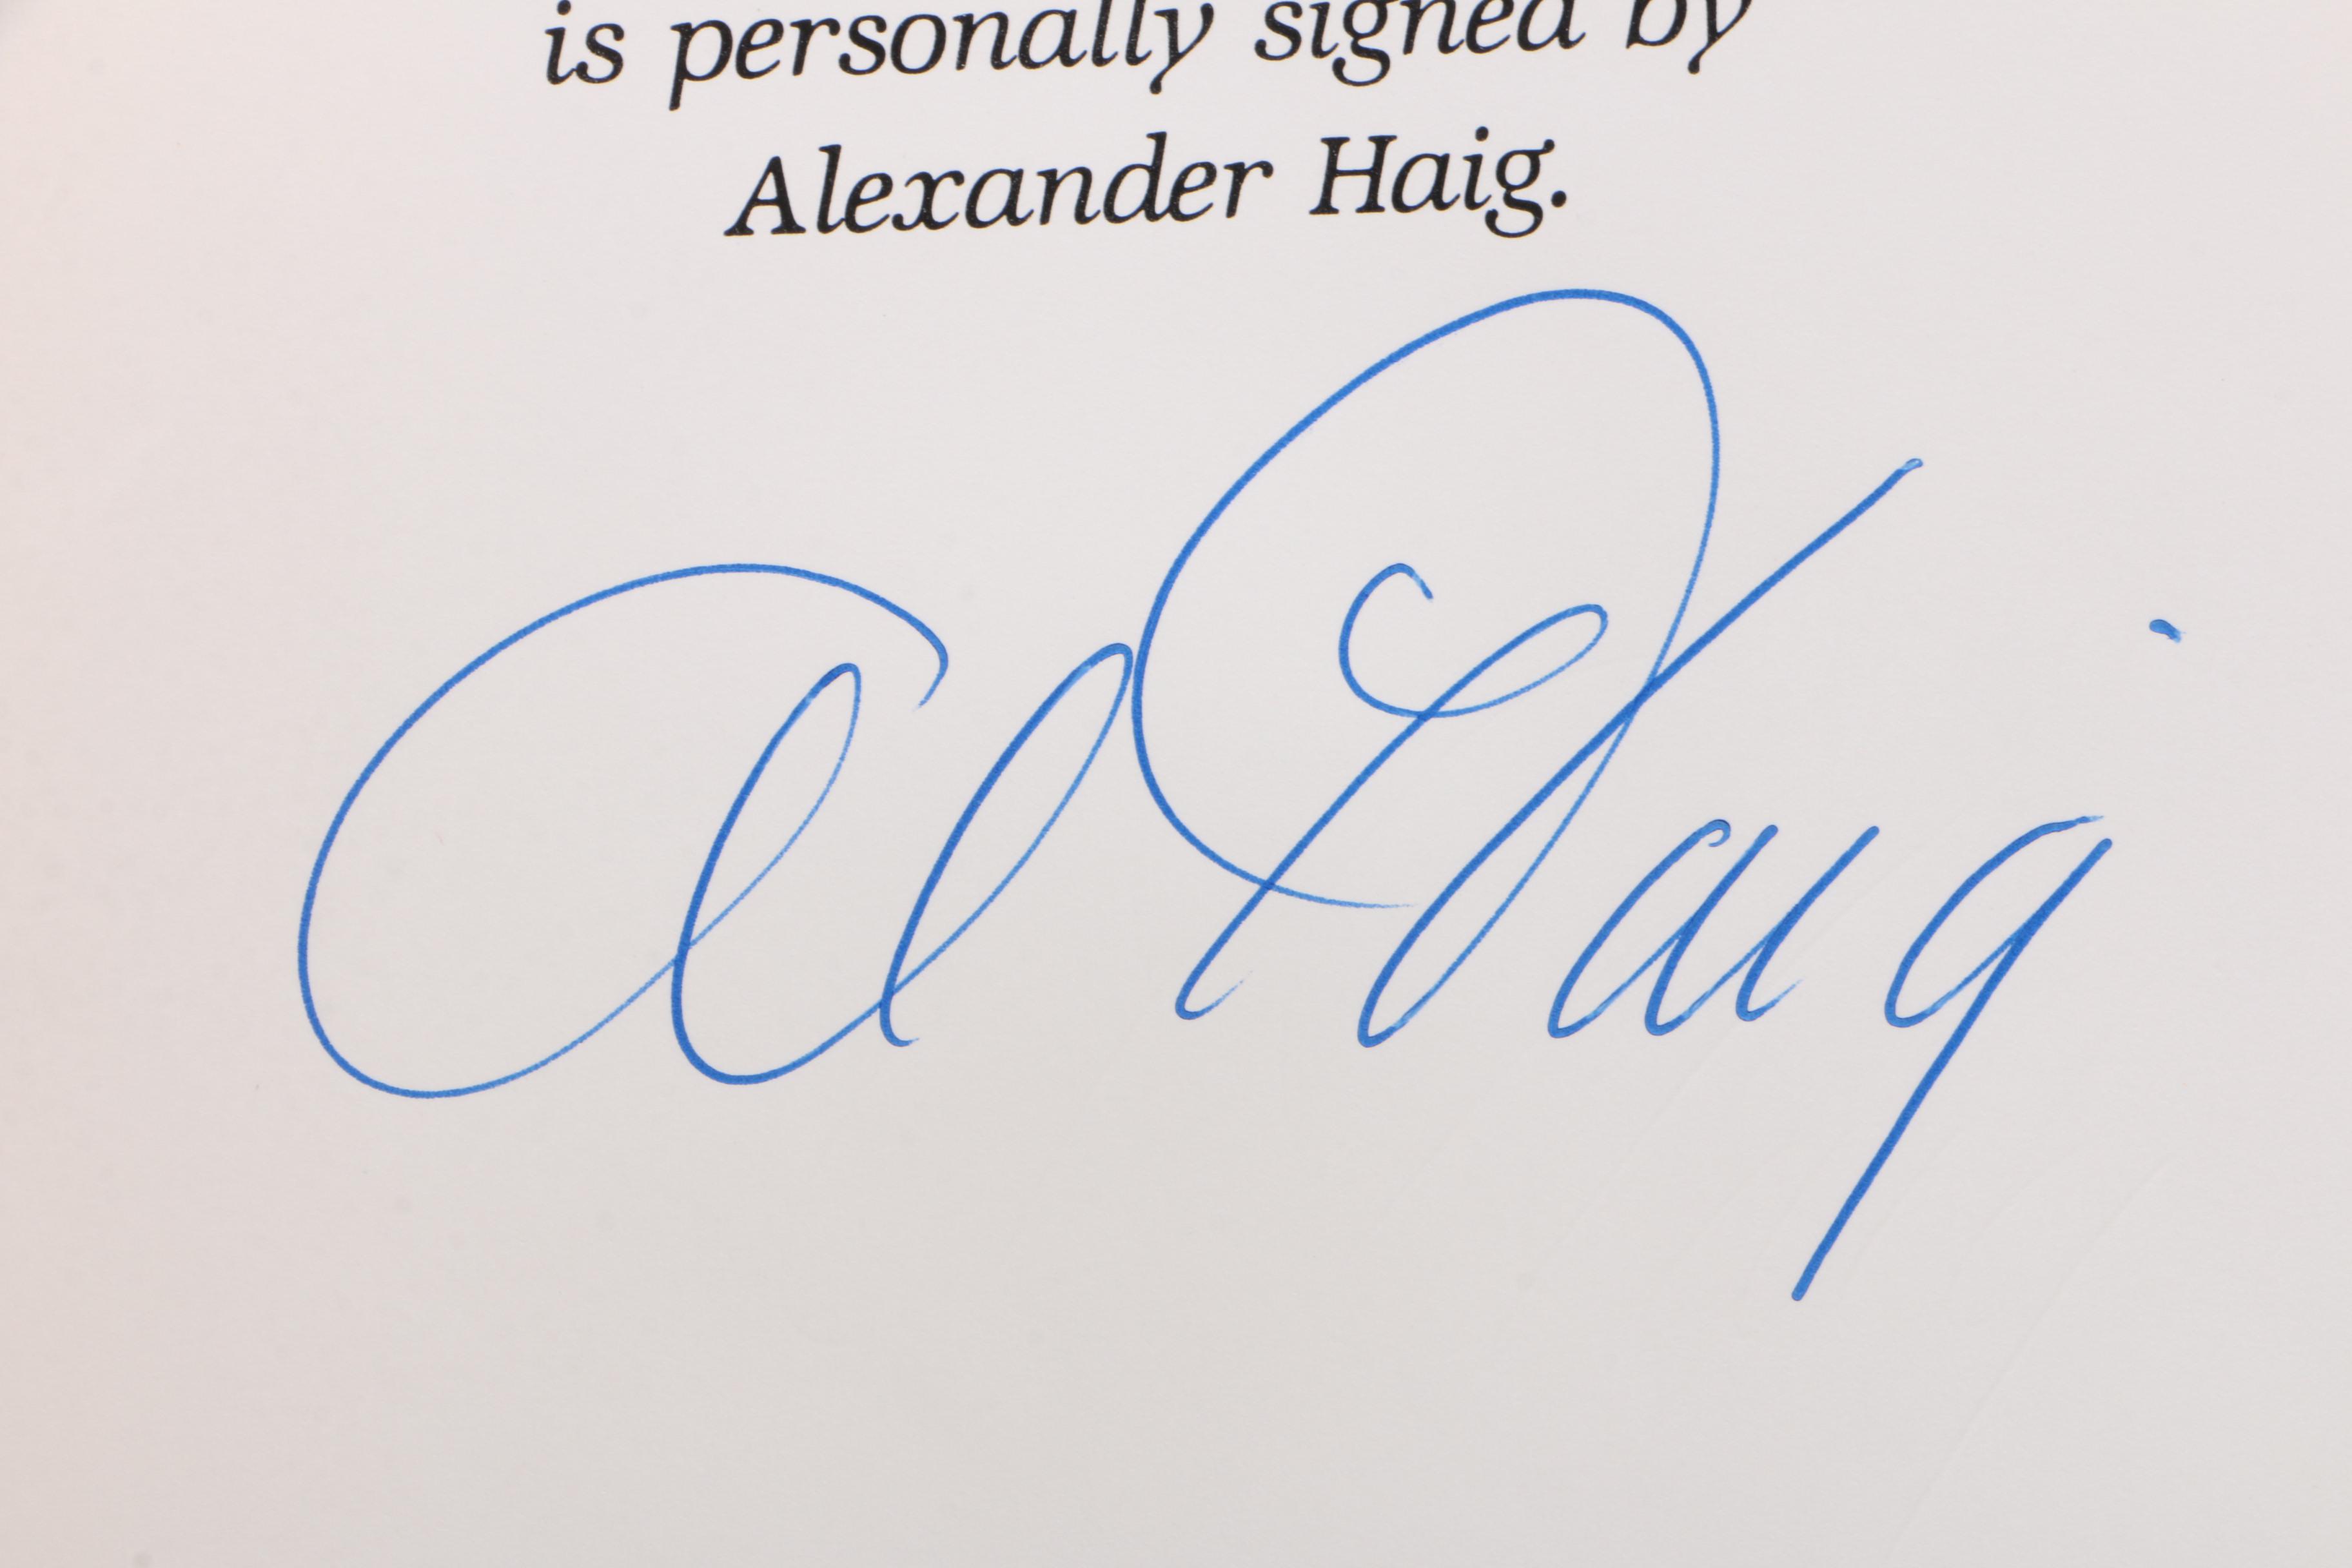 is personally signed by
Alexander Haig.
Al Haig